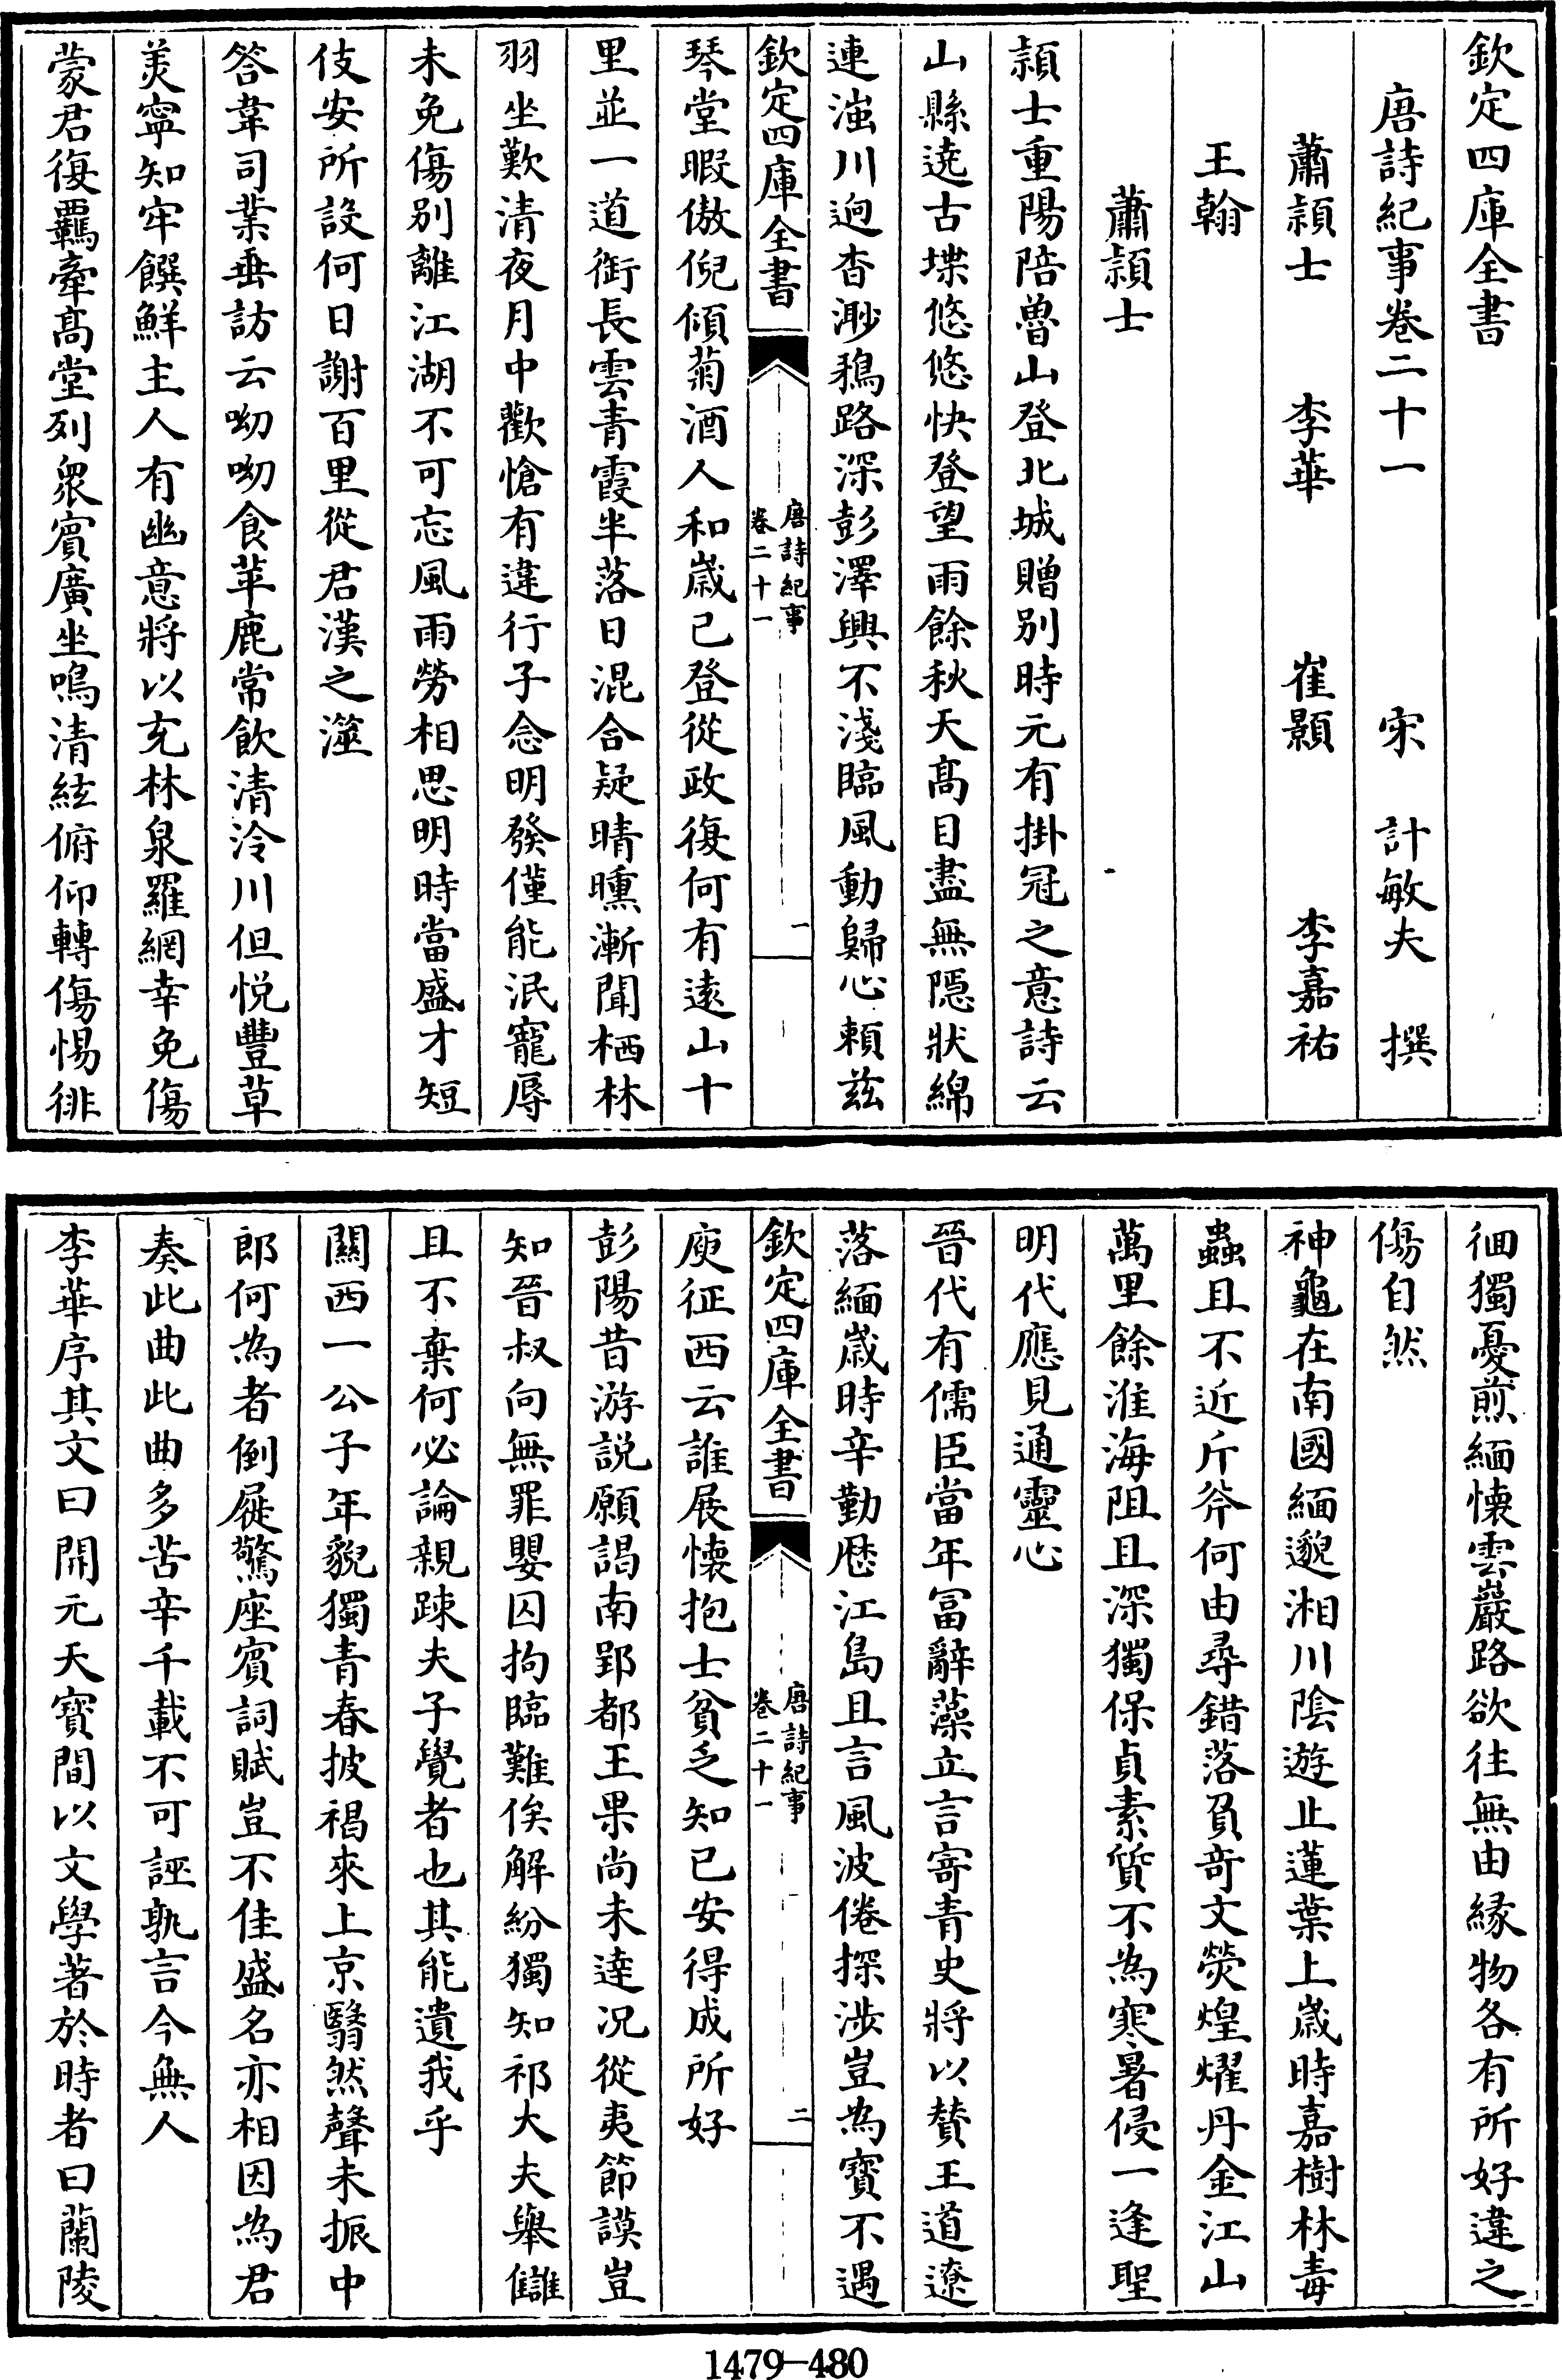 欽定四庫全書
唐詩紀事卷二十一　宋　計敏夫　撰
蕭頴士　李華　崔顥　李嘉祐
王翰
蕭頴士
頴士重陽陪魯山登北城贈别時元有掛冠之意詩云
山縣遶古堞悠悠快登望雨餘秋天髙目盡無隠狀綿
連滍川逈杳渺鵶路深彭澤興不淺臨風動歸心頼兹
欽定四庫全書
唐詩紀事
卷二十一
一
琴堂暇傲倪傾菊酒人和歲已登從政復何有遠山十
里並一道銜長雲青霞半落日混合疑晴曛漸聞栖林
羽坐歎清夜月中歡愴有違行子念明發僅能泯寵辱
未免傷别離江湖不可忘風雨勞相思明時當盛才短
伎安所設何日謝百里從君漢之澨
答韋司業垂訪云呦呦食苹鹿常飲清泠川但悦豐草
美寧知牢饌鮮主人有幽意將以充林泉羅網幸免傷
蒙君復羈牽髙堂列衆賓廣坐鳴清絃俯仰轉傷惕徘
徊獨憂煎緬懐雲巖路欲往無由縁物各有所好違之
傷自然
神龜在南國緬邈湘川隂遊止蓮葉上歲時嘉樹林毒
蟲且不近斤斧何由尋錯落負奇文熒煌燿丹金江山
萬里餘淮海阻且深獨保貞素質不為寒暑侵一逢聖
明代應見通靈心
晉代有儒臣當年富辭藻立言寄青史將以賛王道遼
落緬歲時辛勤厯江島且言風波倦探渉豈為寶不遇
欽定四庫全書
唐詩紀事
卷二十一
二
庾征西云誰展懐抱士貧乏知已安得成所好
彭陽昔游説願謁南郢都王果尚未達况從夷節謨豈
知晉叔向無罪嬰囚拘臨難俟解紛獨知祁大夫舉讎
且不棄何必論親踈夫子覺者也其能遺我乎
關西一公子年貌獨青春披褐來上京翳然聲未振中
郎何為者倒屣驚座賓詞賦豈不佳盛名亦相因為君
奏此曲此曲多苦辛千載不可誣孰言今無人
李華序其文曰開元天寶間以文學著於時者曰蘭陵
1479—480